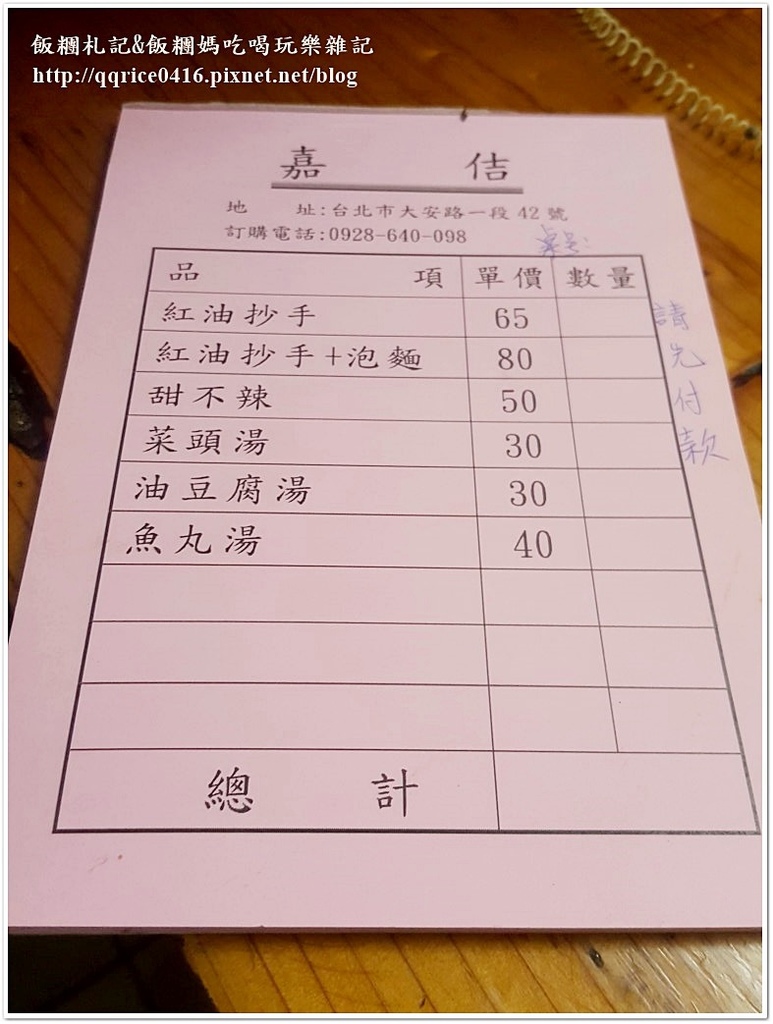 飯糰札記&飯糰媽吃喝玩樂雜記
http://qqrice0416.pixnet.net/blog
嘉 佶
地 址:台北市大安路一段42號
訂購電話:0928-640-098
桌号:
品 項 單價 數量
紅油抄手 65
紅油抄手+泡麵 80
甜不辣 50
菜頭湯 30
油豆腐湯 30
魚丸湯 40
總 計
請先付款